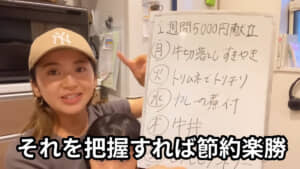 1週間5000円献立
(月) 牛切落とし すきやき
(火) トリムネでトリチリ
(水) カレーの煮付
(木) 牛丼
それを把握すれば節約楽勝